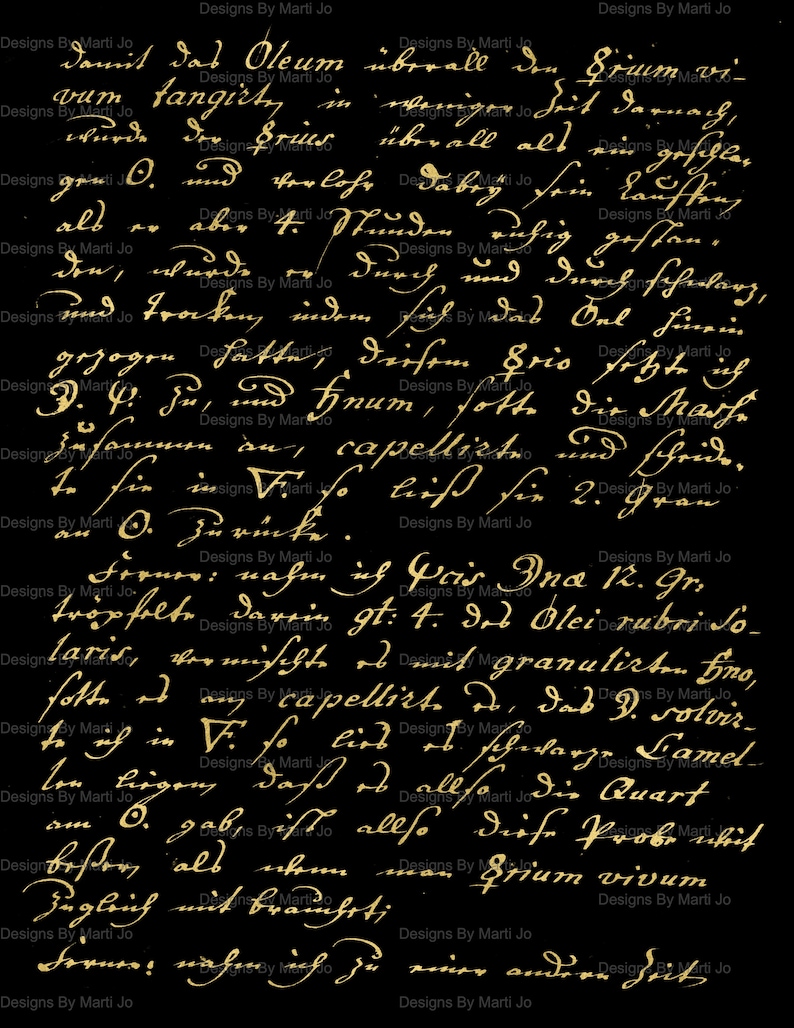 damit das Oleum überall den ☿rium vi-
vum tangirte, in weniger Zeit darnach,
wurde der ☿rius überall als ein geschla-
gen ☉. und verlohr dabey sein Lauffen,
als er aber 4. Stunden ruhig gestan-
den, wurde er durch und durch schwarz,
und trocken, indem sich das Oel hinein
gezogen hatte, diesem ☿rio setzte ich
zu, und ♄num, sotte die Masse
zusammen an, capellirte und scheide-
te sie in 🜅. so ließ sie 2. Gran
an ☉. zurücke.
Ferner: nahm ich 12. Gr:
tröpfelte darein gt: 4. des Olei rubei So-
laris, vermischte es mit granulirten ♄no,
sotte es an, capellirte es, das ☽. solvir-
te ich in 🜅. so lies es schwarze Lamel-
len liegen, daß es allso die Quart
am ☉. gab, ist allso diese Probe weit
beßer, als wenn man ☿rium vivum
zugleich mit brauchet;
Ferner: nahm ich zu einer andern Zeit
Designs By Marti Jo